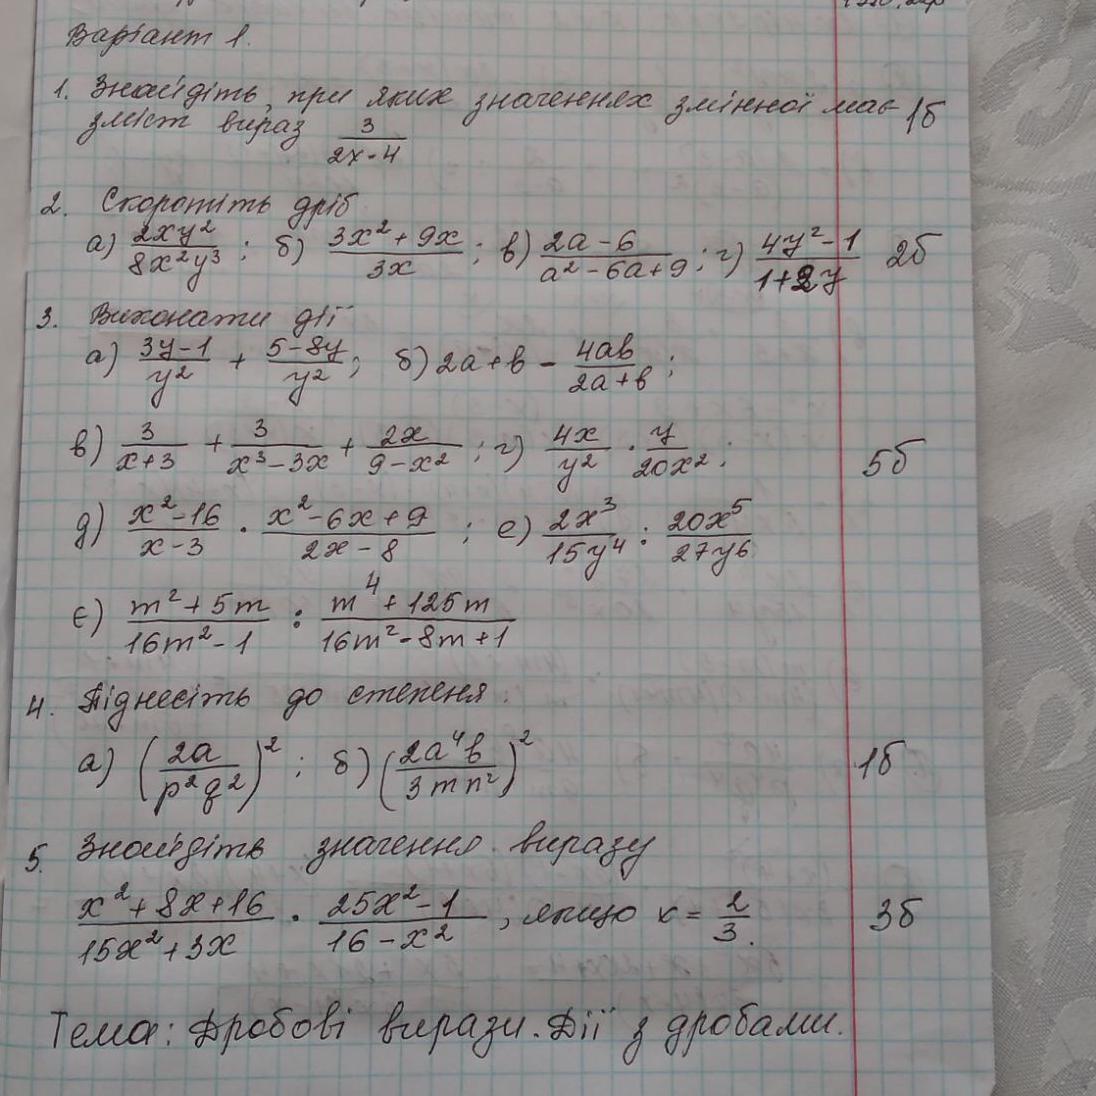 Варіант 1.
1. Знайдіть, при яких значеннях змінної має 1б
зміст вираз 3/(2x-4)
2. Скоротіть дріб
а) 2xy²/8x²y³; б) (3x²+9x)/3x; в) (2a-6)/(a²-6a+9); г) (4y²-1)/(1+2y) 2б
3. Виконати дії
а) (3y-1)/y² + (5-8y)/y²; б) 2a+b - 4ab/(2a+b);
в) 3/(x+3) + 3/(x³-3x) + 2x/(9-x²); г) 4x/y² · y/20x²; 5б
д) (x²-16)/(x-3) · (x²-6x+9)/(2x-8); е) 2x³/15y⁴ : 20x⁵/27y⁶
є) (m²+5m)/(16m²-1) : (m⁴+125m)/(16m²-8m+1)
4. Піднесіть до степеня.
а) (2a/p²q²)²; б) (2a⁴b/3mn²)² 1б
5. Знайдіть значення виразу
(x²+8x+16)/(15x²+3x) · (25x²-1)/(16-x²), якщо x = 2/3. 3б
Тема: Дробові вирази. Дії з дробами.